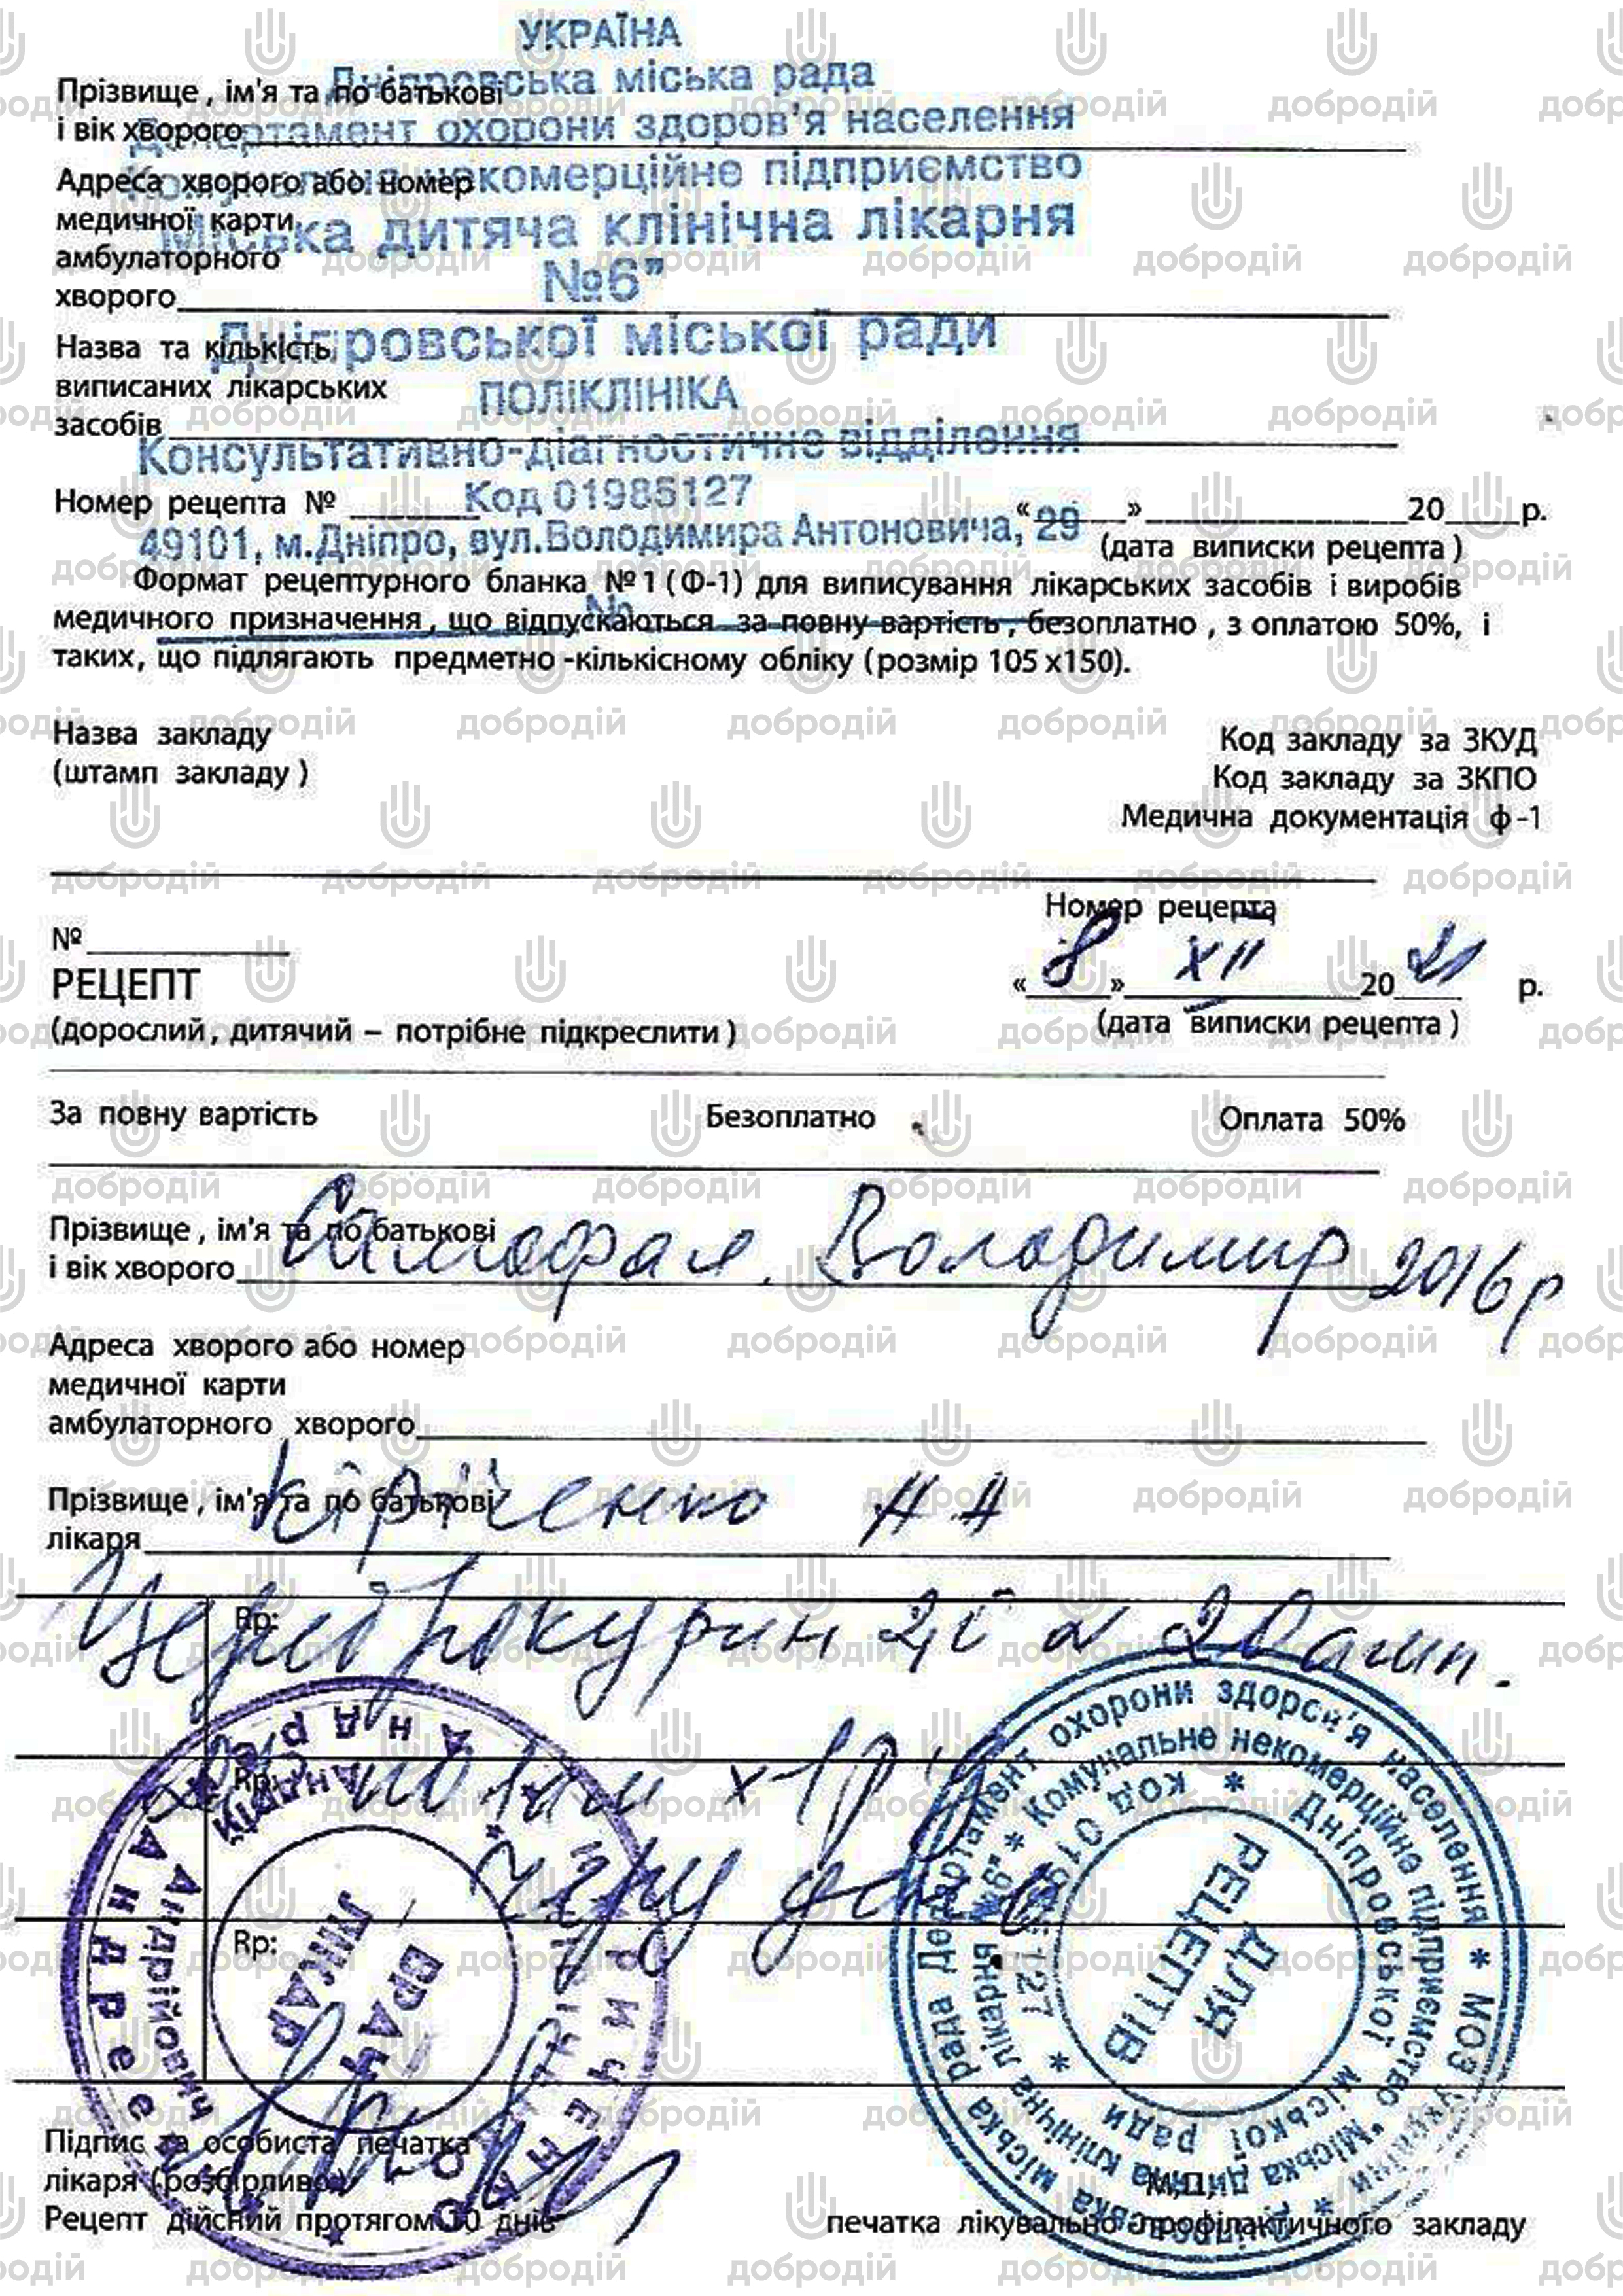 УКРАЇНА
Дніпровська міська рада
Прізвище, ім'я та по батькові
Департамент охорони здоров'я населення
і вік хворого
некомерційне підприємство
Адреса хворого або номер
медичної карти
Міська дитяча клінічна лікарня
амбулаторного
№6"
хворого
Дніпровської міської ради
Назва та кількість
виписаних лікарських
ПОЛІКЛІНІКА
засобів
Консультативно-діагностичне відділення
Номер рецепта №
Код 01985127
« » 20 р.
49101, м.Дніпро, вул.Володимира Антоновича, 29
(дата виписки рецепта)
Формат рецептурного бланка №1 (Ф-1) для виписування лікарських засобів і виробів
№
медичного призначення, що відпускаються за повну вартість, безоплатно, з оплатою 50%, і
таких, що підлягають предметно-кількісному обліку (розмір 105 х150).
Назва закладу
Код закладу за ЗКУД
(штамп закладу)
Код закладу за ЗКПО
Медична документація ф-1
Номер рецепта
№
РЕЦЕПТ
« 8 » XII 20 21 р.
(дорослий, дитячий – потрібне підкреслити)
(дата виписки рецепта)
За повну вартість Безоплатно Оплата 50%
Прізвище, ім'я та по батькові
і вік хворого Самофал. Володимир 2016 р
Адреса хворого або номер
медичної карти
амбулаторного хворого
Прізвище, ім'я та по батькові
лікаря
Rp:
Цереброкурин 2,0 20 амп.
Rp:
Rp:
ВРАЧ
ЛІКАР
Андрійович
ДЛЯ
РЕЦЕПТІВ
Департамент охорони здоров'я населення * МОЗ України * Дніпровська міська рада
* Комунальне некомерційне підприємство "Міська дитяча клінічна лікарня №6" *
Дніпровської міської ради * код 01985127 *
Підпис та особиста печатка
лікаря (розбірливо)
М.П.
Рецепт дійсний протягом 10 днів
печатка лікувально-профілактичного закладу
добродій